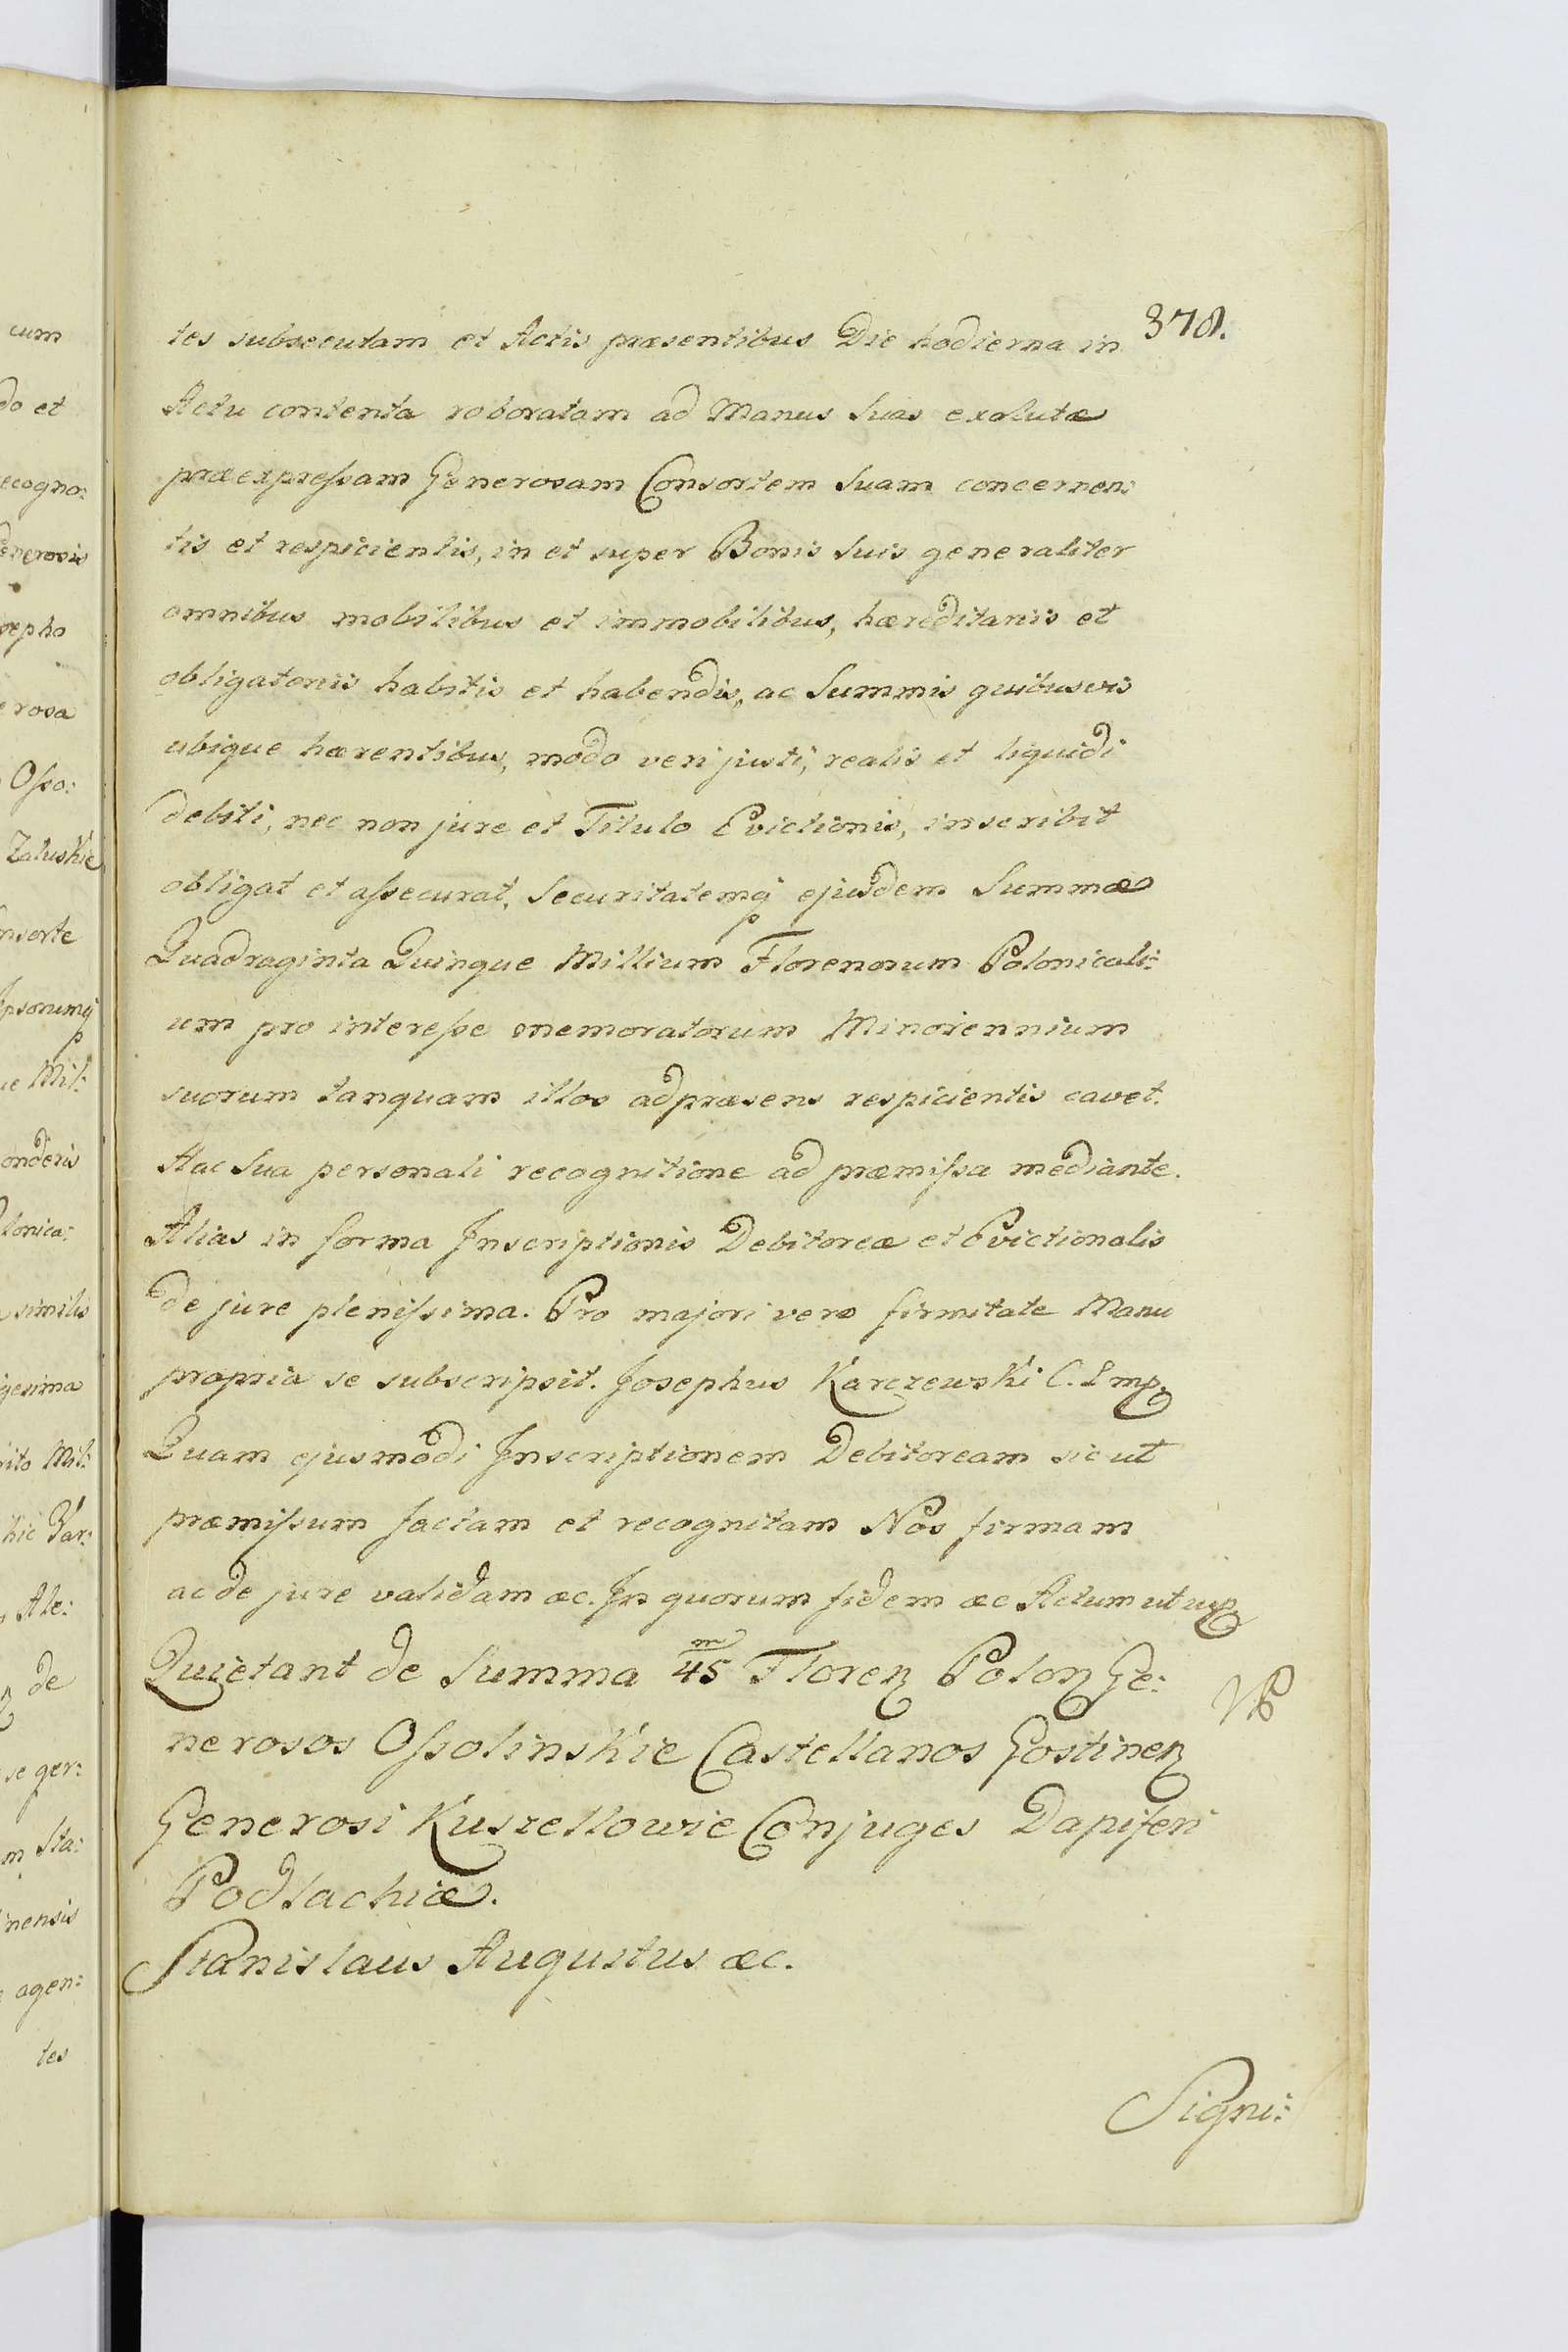 378.
tes subsecutam et Actis præsentibus Die hodierna in
Actu contenta roboratam ad Manus Suas exolutæ
præexpreſsam Generosam Consortem Suam concernen:
tis et respicientis, in et super Bonis Suis generaliter
omnibus mobilibus et immobilibus, hæreditariis et
obligatoriis habitis et habendis, ac Summis quibusvis
ubique hærentibus, modo veri justi, realis et liquidi
debiti, nec non jure et Titulo Evictionis, inscribit
obligat et aſsecurat, Securitatemq; ejusdem Summæ
Quadraginta Quinque Millium Florenorum Polonicali:
um pro intereſse memoratorum Minorennium
suorum tanquam illos ad præsens respicientis cavet.
Hac Sua personali recognitione ad præmiſsa mediante.
Alias in forma Inscriptionis Debitoreæ et Evictionalis
de jure pleniſsima. Pro majori vero firmitate Manu
propria se subscripsit. Josephus Karczewski C. L mp
Quam ejusmodi Inscriptionem Debitoream sic ut
præmiſsum factam et recognitam Nos firmam
ac de jure validam æc. In quorum fidem æc Actum ut sup
Quietant de Summa 45 m Floren Polon Ge:
nerosos Oſsolinskie Castellanos Gostinen
Generosi Kuszellowie Conjuges Dapiferi
Podlachiæ.
Stanislaus Augustus æc.
Signi:
cum
do et
ecogno:
enerosis
sepho
erosa
Oſso:
Zaluskie
nsorte
Ipsorumq;
ue Mil:
onderis
lonica:
similis
gesima
rito Mil:
hic Var:
Ale:
de
se ger:
m Sta:
inensis
agen:
tes